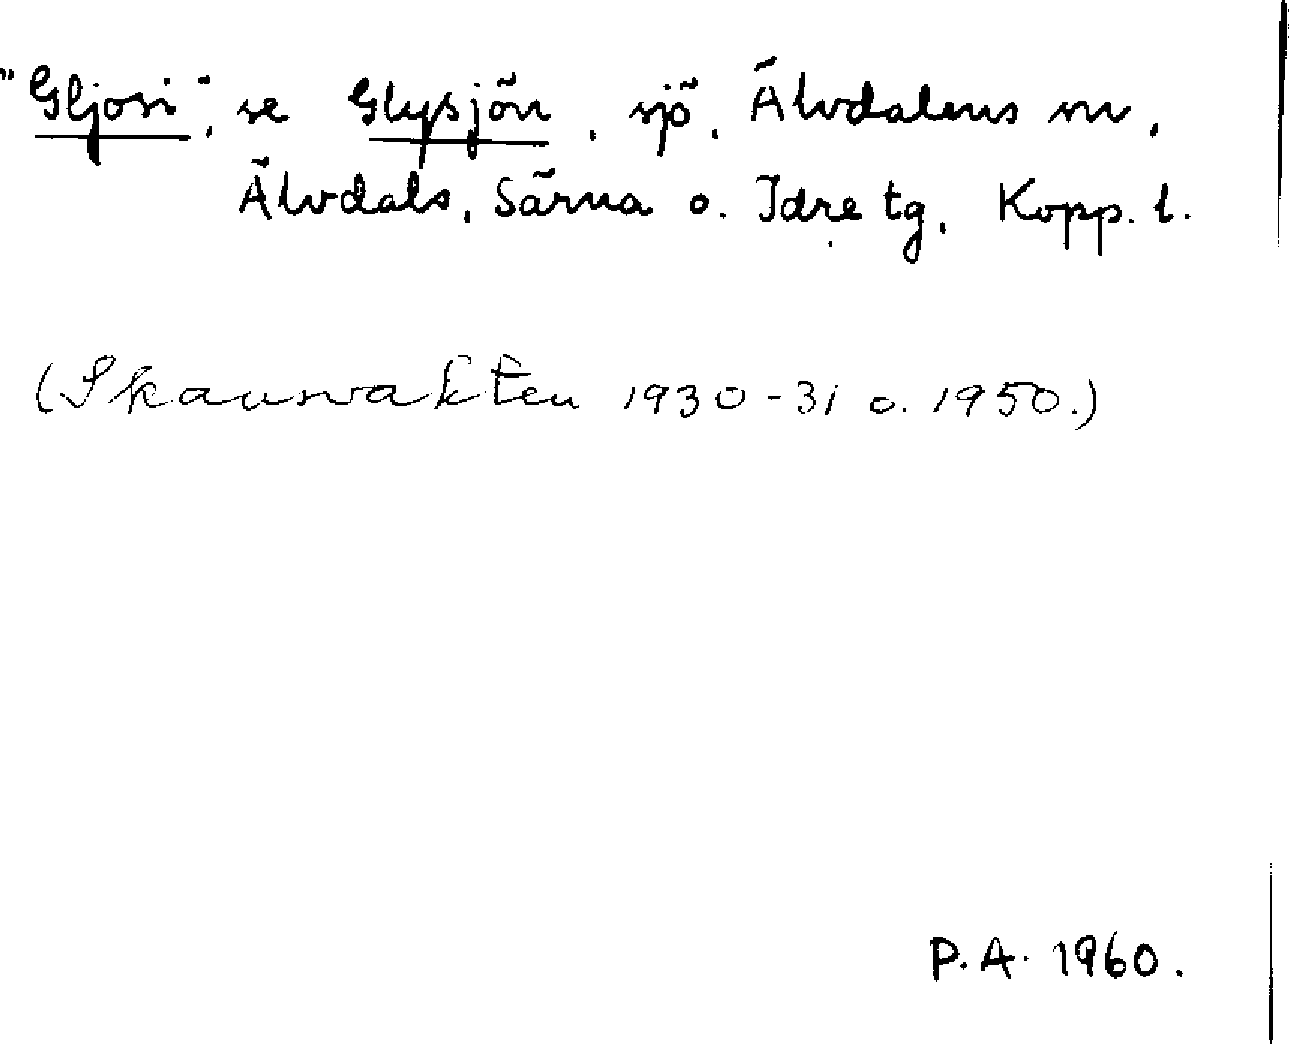 "Gljosi", se Glysjön, sjö, Älvdalens sn,
Älvdals, Särna o. Idre tg, Kopp. l.
(Skansvakten 1930-31 o. 1950.)
P.A. 1960.